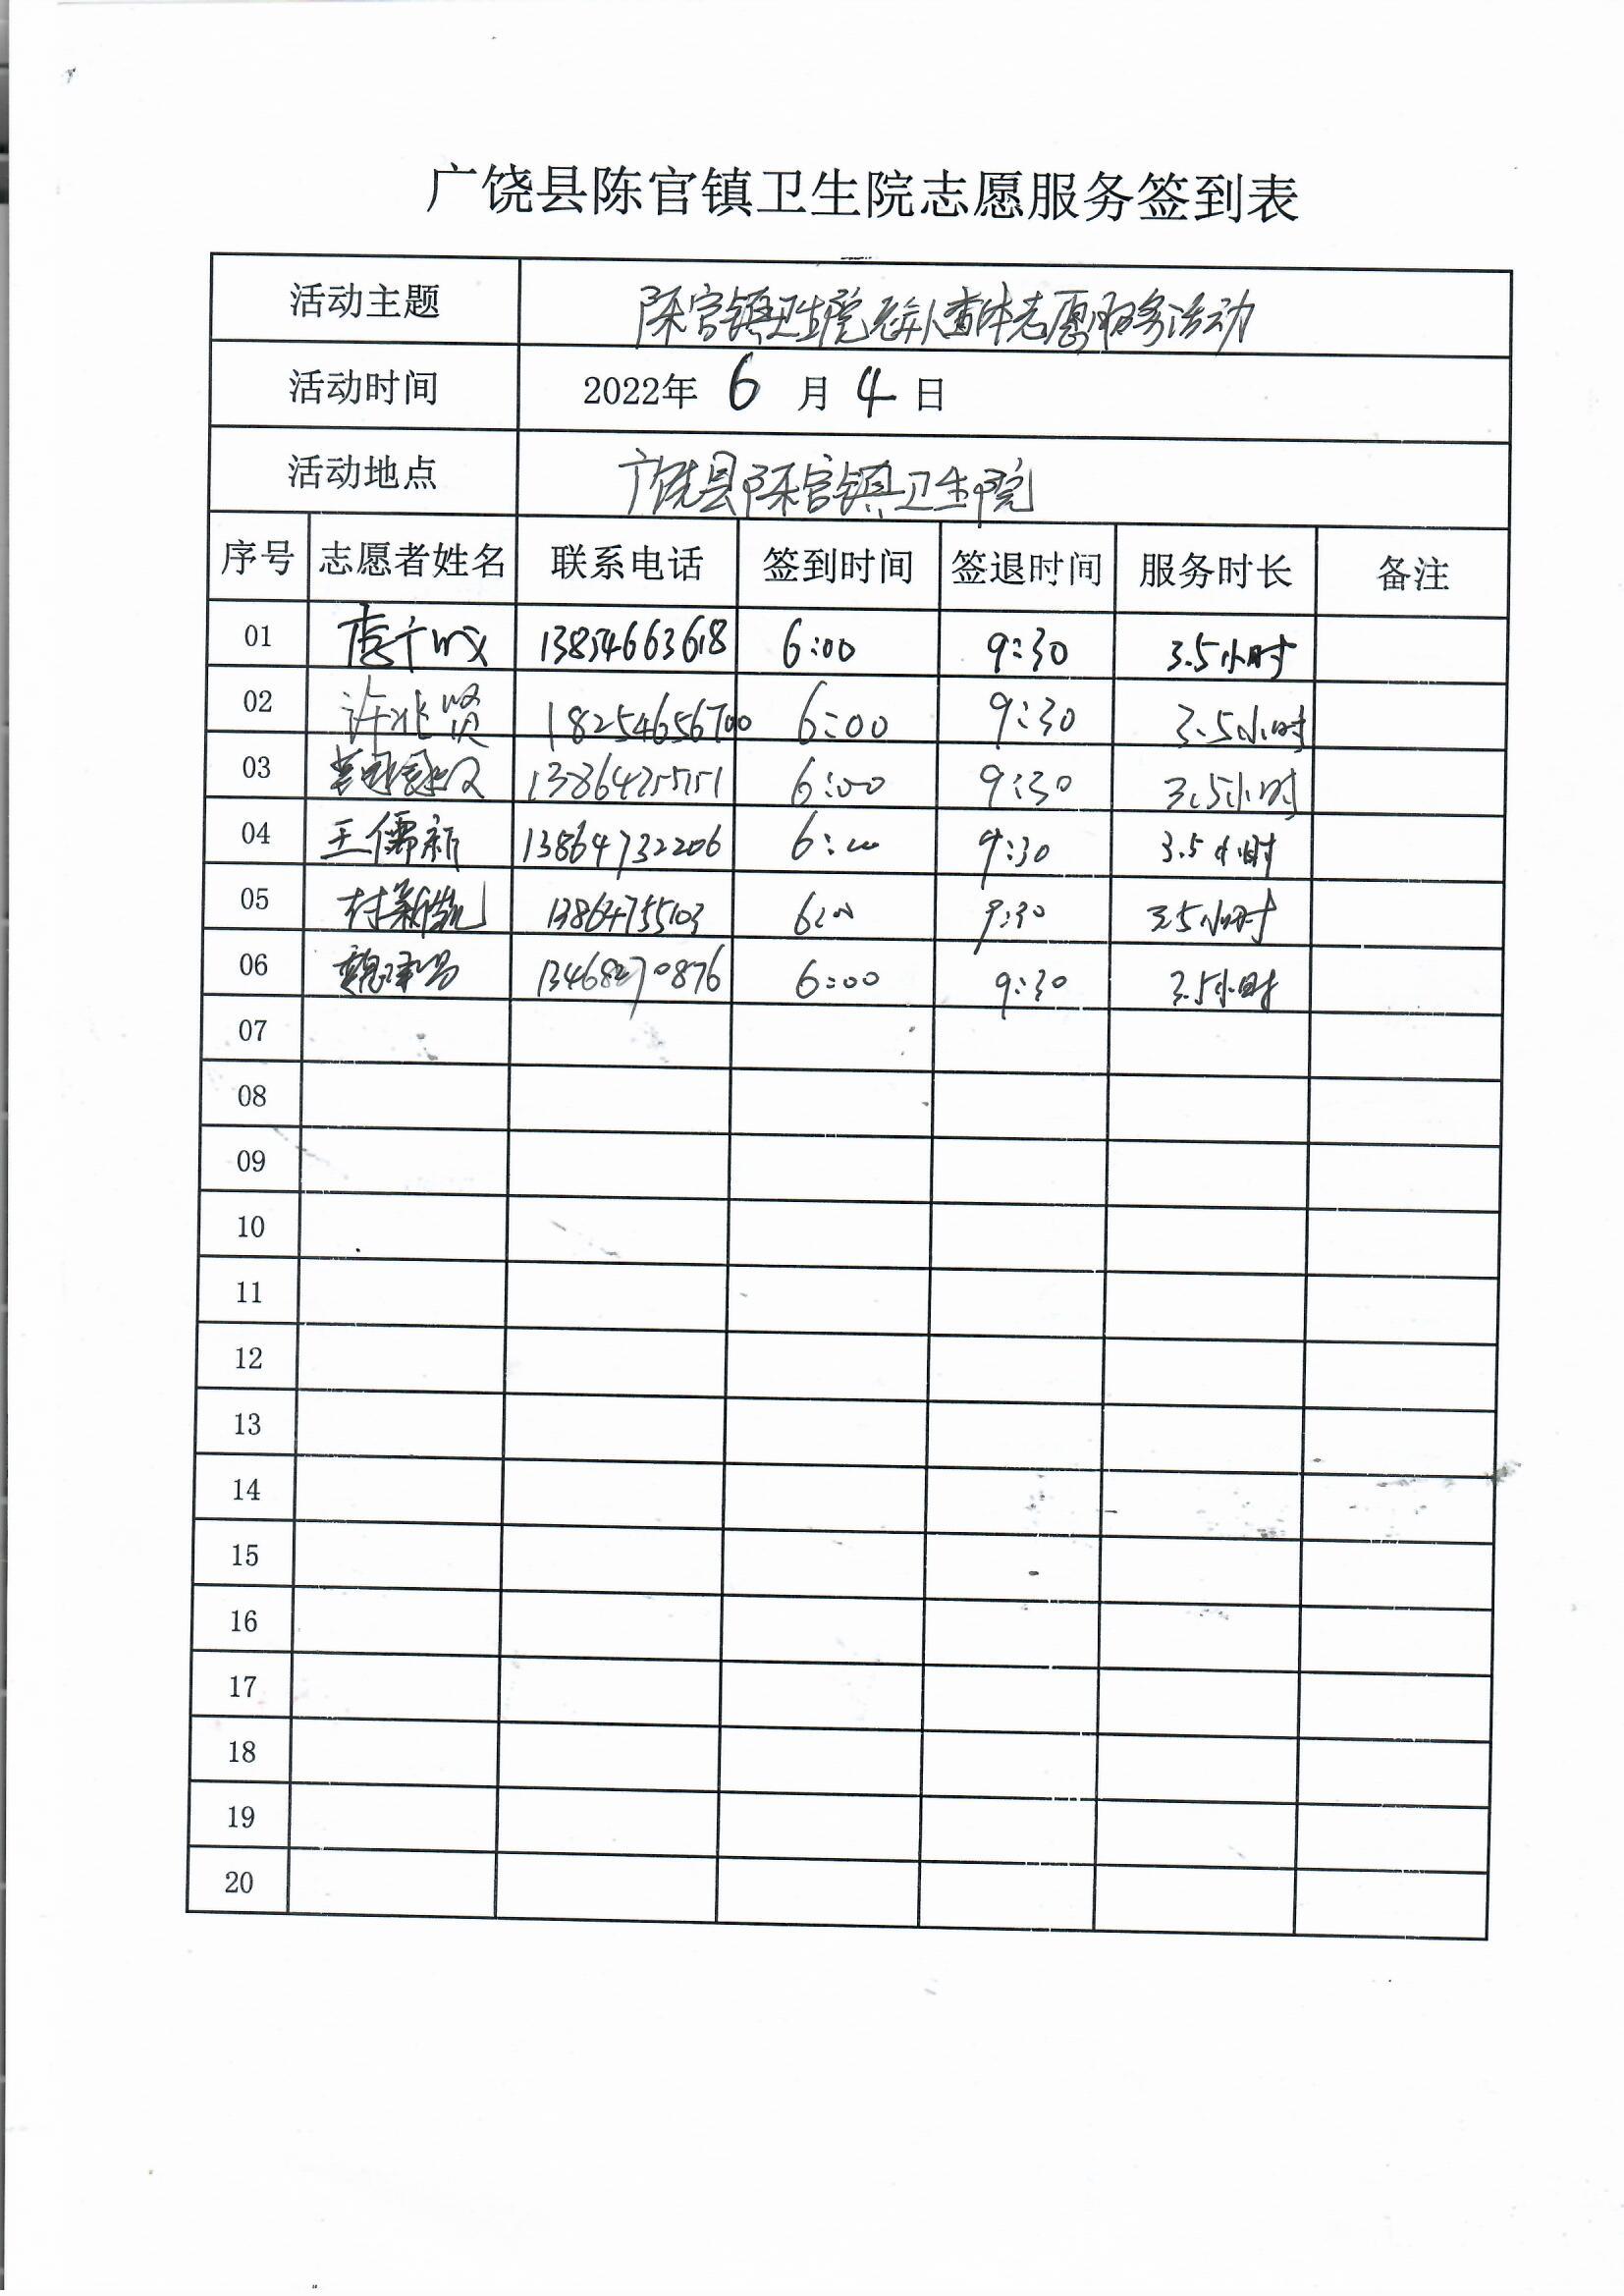 广饶县陈官镇卫生院志愿服务签到表
活动主题 陈官镇卫生院老年人查体志愿服务活动
活动时间 2022年 6 月 4 日
活动地点 广饶县陈官镇卫生院
序号 志愿者姓名 联系电话 签到时间 签退时间 服务时长 备注
01 13854663618 6:00 9:30 3.5小时
02 许兆贤 18254656700 6:00 9:30 3.5小时
03 6:00 9:30 3.5小时
04 王儒新 13864732206 6:00 9:30 3.5小时
05 13864755103 6:00 9:30 3.5小时
06 13468270876 6:00 9:30 3.5小时
07
08
09
10
11
12
13
14
15
16
17
18
19
20